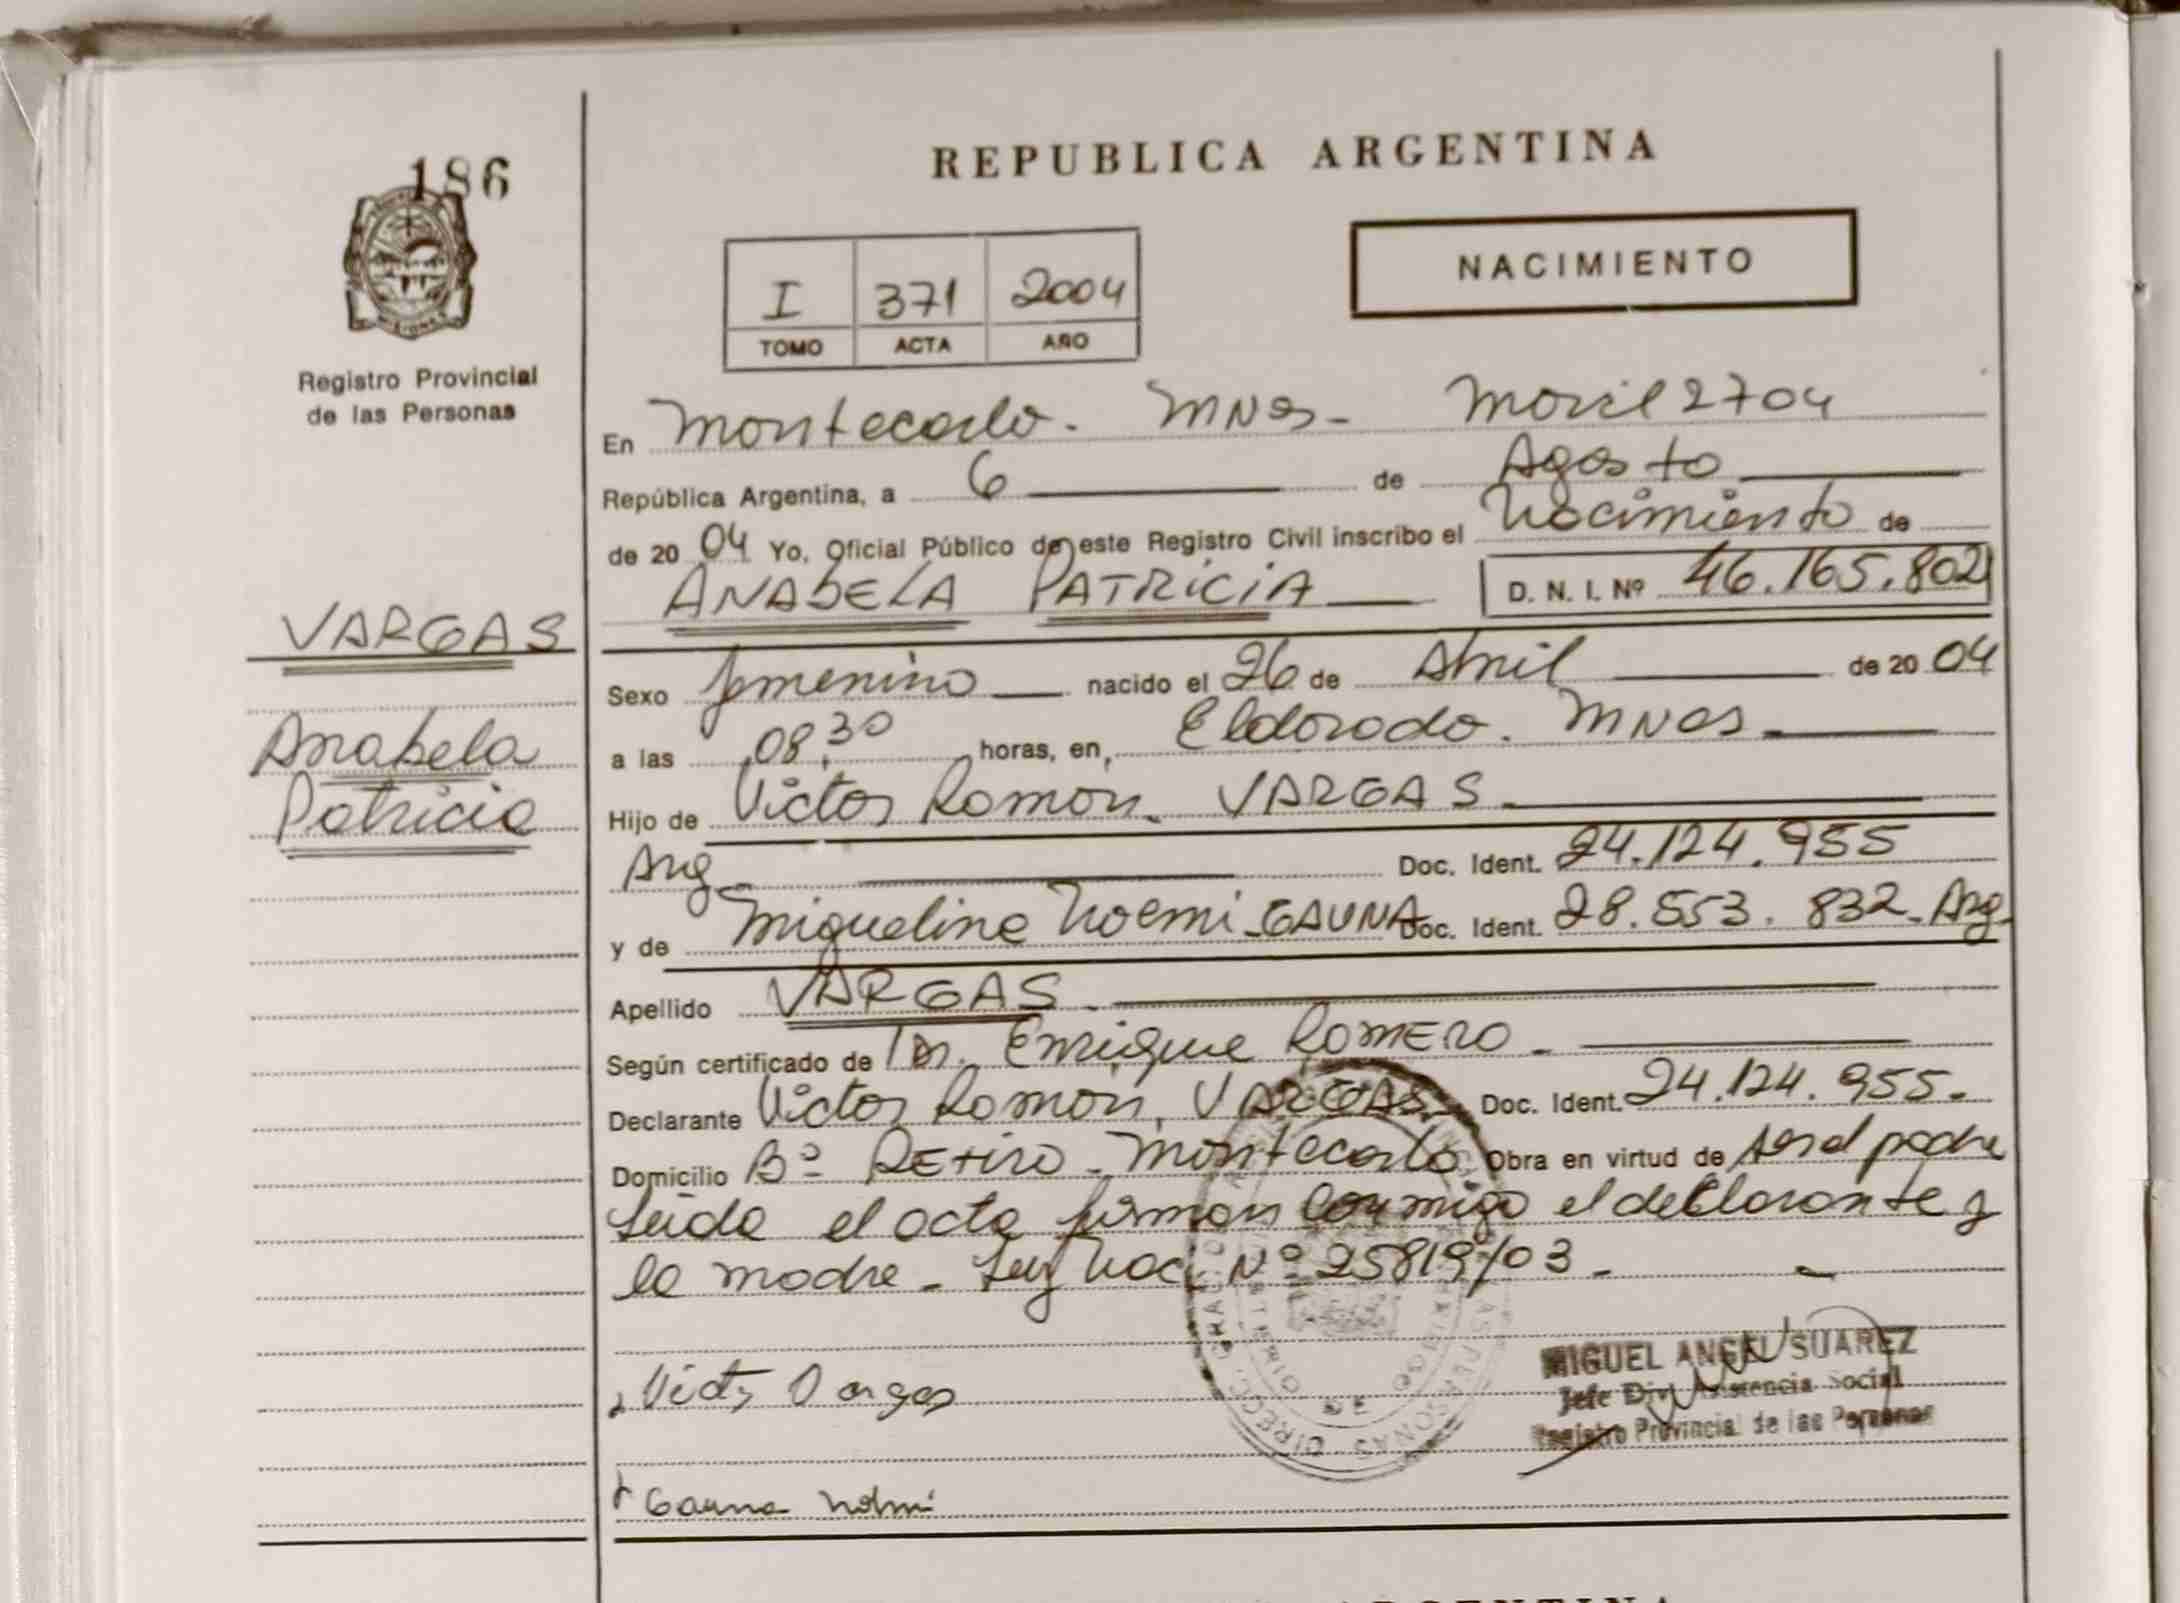 186
Registro Provincial
de las Personas
VARGAS
Anabela
Patricia
REPUBLICA ARGENTINA
I 371 2004
TOMO ACTA AÑO
NACIMIENTO
En Montecarlo. MNES- Movil 2704
República Argentina, a 6 de Agosto
de 2004 Yo, Oficial Público de este Registro Civil inscribo el Nacimiento de
ANABELA PATRICIA D. N. I. Nº 46.165.802
Sexo femenino nacido el 26 de Abril de 2004
a las 08,30 horas, en, Eldorado. MNES
Hijo de Victor Ramon VARGAS
Arg Doc. Ident. 24.124.955
y de Miguelina Noemi GAUNA Doc. Ident. 28.553.832- Arg-
Apellido VARGAS.
Según certificado de Dr. Enrique ROMERO
Declarante Victor Ramon VARGAS Doc. Ident. 24.124.955.
Domicilio Bº RETIRO - Montecarlo Obra en virtud de ser el padre
Leida el acta firman conmigo el declarante y
la madre - Ley Nac. Nº 25819/03 -
Victor Vargas
MIGUEL ANGEL SUAREZ
Jefe Div. Asistencia Social
Registro Provincial de las Personas
Gauna Noemi